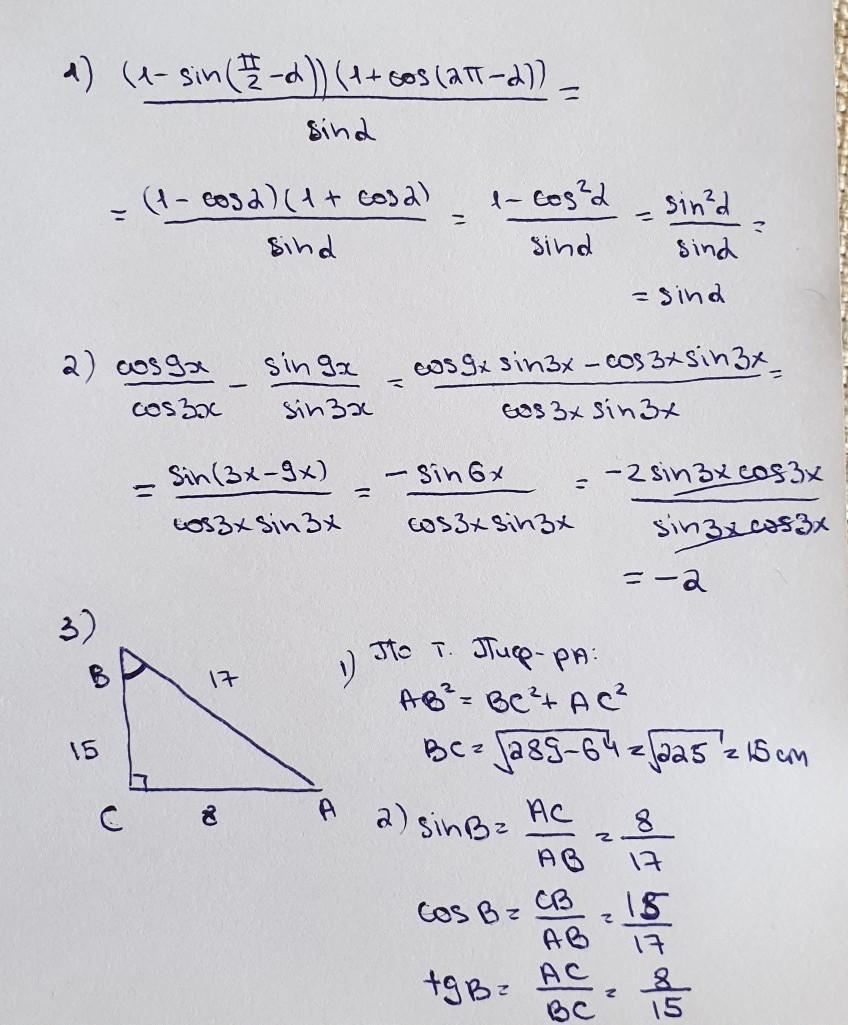 1) (1 - sin(π/2 - α))(1 + cos(2π - α)) / sin α =
= (1 - cos α)(1 + cos α) / sin α = 1 - cos²α / sin α = sin²α / sin α =
= sin α
2) cos 9x / cos 3x - sin 9x / sin 3x = cos 9x sin 3x - cos 3x sin 3x / cos 3x sin 3x =
= sin(3x - 9x) / cos 3x sin 3x = - sin 6x / cos 3x sin 3x = -2 sin 3x cos 3x / sin 3x cos 3x
= -2
3)
B 17
15
C 8 A
1) По т. Пиф-ра:
AB² = BC² + AC²
BC = √289-64 = √225 = 15 cm
2) sin B = AC / AB = 8 / 17
cos B = CB / AB = 15 / 17
tg B = AC / BC = 8 / 15